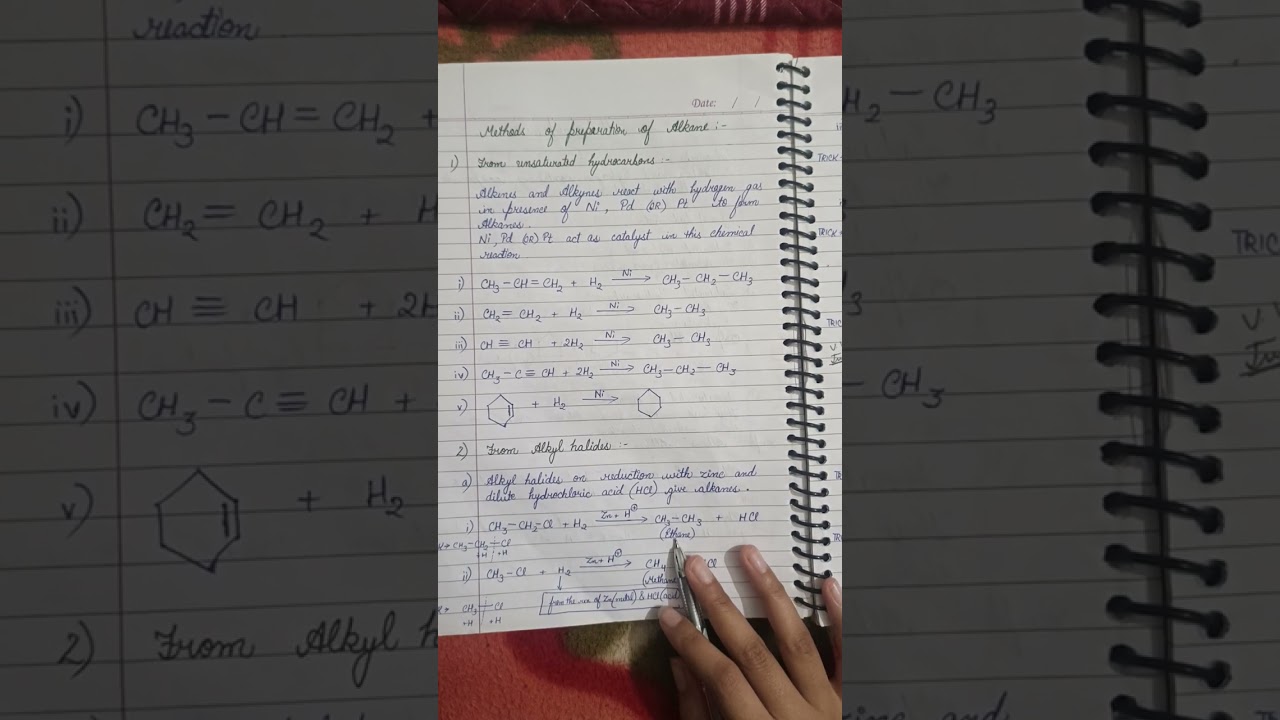 Date: / /
Methods of preparation of Alkane :-
1) From unsaturated hydrocarbons :-
Alkenes and Alkynes react with hydrogen gas
in presence of Ni, Pd (OR) Pt to form
Alkanes.
Ni, Pd (OR) Pt act as catalyst in this chemical
reaction
i) CH3-CH=CH2 + H2 Ni → CH3-CH2-CH3
ii) CH2=CH2 + H2 Ni → CH3-CH3
iii) CH≡CH + 2H2 Ni → CH3-CH3
iv) CH3-C≡CH + 2H2 Ni → CH3-CH2-CH3
v) + H2 Ni →
2) From Alkyl halides :-
a) Alkyl halides on reduction with zinc and
dilute hydrochloric acid (HCl) give alkanes.
i) CH3-CH2-Cl + H2 Zn + H⊕ → CH3-CH3 + HCl
(Ethane)
CH3-CH2-Cl
+H +H
ii) CH3-Cl + H2 Zn + H⊕ → CH4 Cl
(Methane
↓
[from the rxn of Zn(metal) & HCl(acid)
CH3-Cl
+H +H
TRICK
TRICK
reaction
i) CH3-CH=CH2 + H2-CH3
ii) CH2=CH2 + H
iii) CH≡CH + 2H
iv) CH3-C≡CH + -CH3
v) + H2
2) From Alkyl h
TRIC